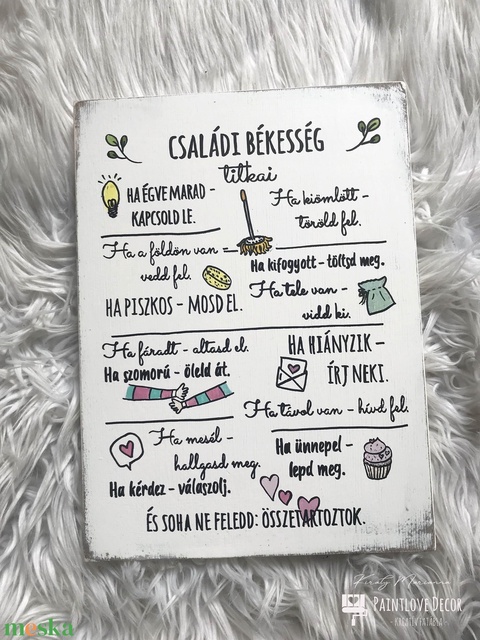 CSALÁDI BÉKESSÉG
titkai
HA ÉGVE MARAD -
KAPCSOLD LE.
Ha kiömlött -
töröld fel.
Ha a földön van -
vedd fel.
Ha kifogyott - töltsd meg.
HA PISZKOS - MOSD EL.
Ha tele van -
vidd ki.
Ha fáradt - altasd el.
Ha szomorú - öleld át.
HA HIÁNYZIK -
ÍRJ NEKI.
Ha távol van - hívd fel.
Ha mesél -
hallgasd meg.
Ha kérdez - válaszolj.
Ha ünnepel -
lepd meg.
ÉS SOHA NE FELEDD: ÖSSZETARTOZTOK.
Király Marianna
PAINTLOVEDECOR
- KREATÍV FATÁBLA -
meska